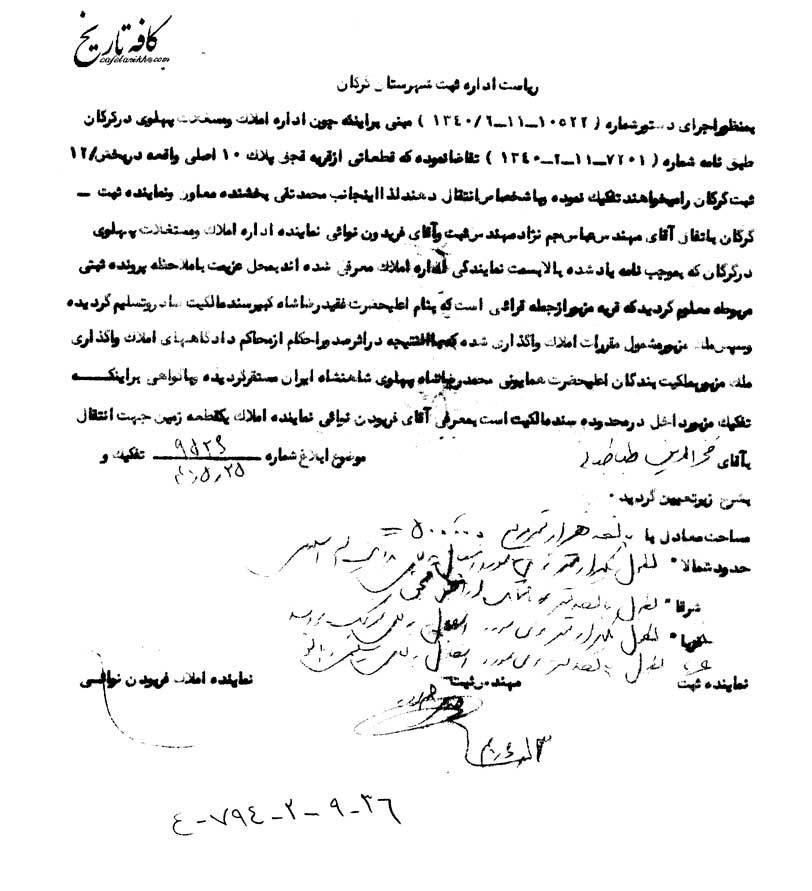 کافه تاریخ
cafetarikh.com
ریاست اداره ثبت شهرستان گرگان
بمنظور اجرای دستور شماره ( ۱۰۵۲۲ــ۱۱ــ۱۳۴۰/۶ ) مبنی براینکه چون اداره املاک ومستغلات پهلوی درگرگان
طبق نامه شماره ( ۷۲۰۱ــ۱۱ــ۲ــ۱۳۴۰ ) تقاضانموده که قطعاتی ازقریه قجق پلاک ۱۰ اصلی واقعه دربخش/۱۲
ثبت گرگان رامیخواهند تفکیک نموده وباشخاص انتقال دهند لذا اینجانب محمدتقی بخشنده معاون ونماینده ثبت ــ
گرگان باتفاق آقای مهندس عباس جم نژاد مهندس ثبت وآقای فریدون نوائی نماینده اداره املاک ومستغلات پهلوی
درگرگان که بموجب نامه یاد شده بالابسمت نمایندگی اداره املاک معرفی شده اند بمحل عزیمت باملاحظه پرونده ثبتی
مربوطه معلوم گردید که قریه مزبور ازجمله قرائی است که بنام اعلیحضرت فقید رضاشاه کبیر سند مالکیت صادر وتسلیم گردیده
وسپس ملک مزبور مشمول مقررات املاک واگذاری شده که بالنتیجه دراثر صدور احکام ازمحاکم دادگاههای املاک واگذاری
ملک مزبور بملکیت بندگان اعلیحضرت همایونی محمدرضاشاه پهلوی شاهنشاه ایران مستقر گردیده وباگواهی براینکــه
تفکیک مزبور داخل درمحدوده سند مالکیت است بمعرفی آقای فریدون نوائی نماینده املاک یکقطعه زمین جهت انتقال
بآقای فخرالدین طباطبائی موضوع ابلاغ شماره تفکیک و
بشرح زیر تعیین گردید.
مساحت معادل با پانصد هزار متر مربع ۵۰۰۰۰۰ =
حدود شمالا" بطول یکهزار متر
شرقا" بطول پانصد متر
جنوبا" بطول یکهزار متر
غربا بطول پانصد متر
نماینده ثبت مهندس ثبت نماینده املاک فریدون نوائی
۴ــ۷۹۴ــ۲ــ۹ــ۳۶